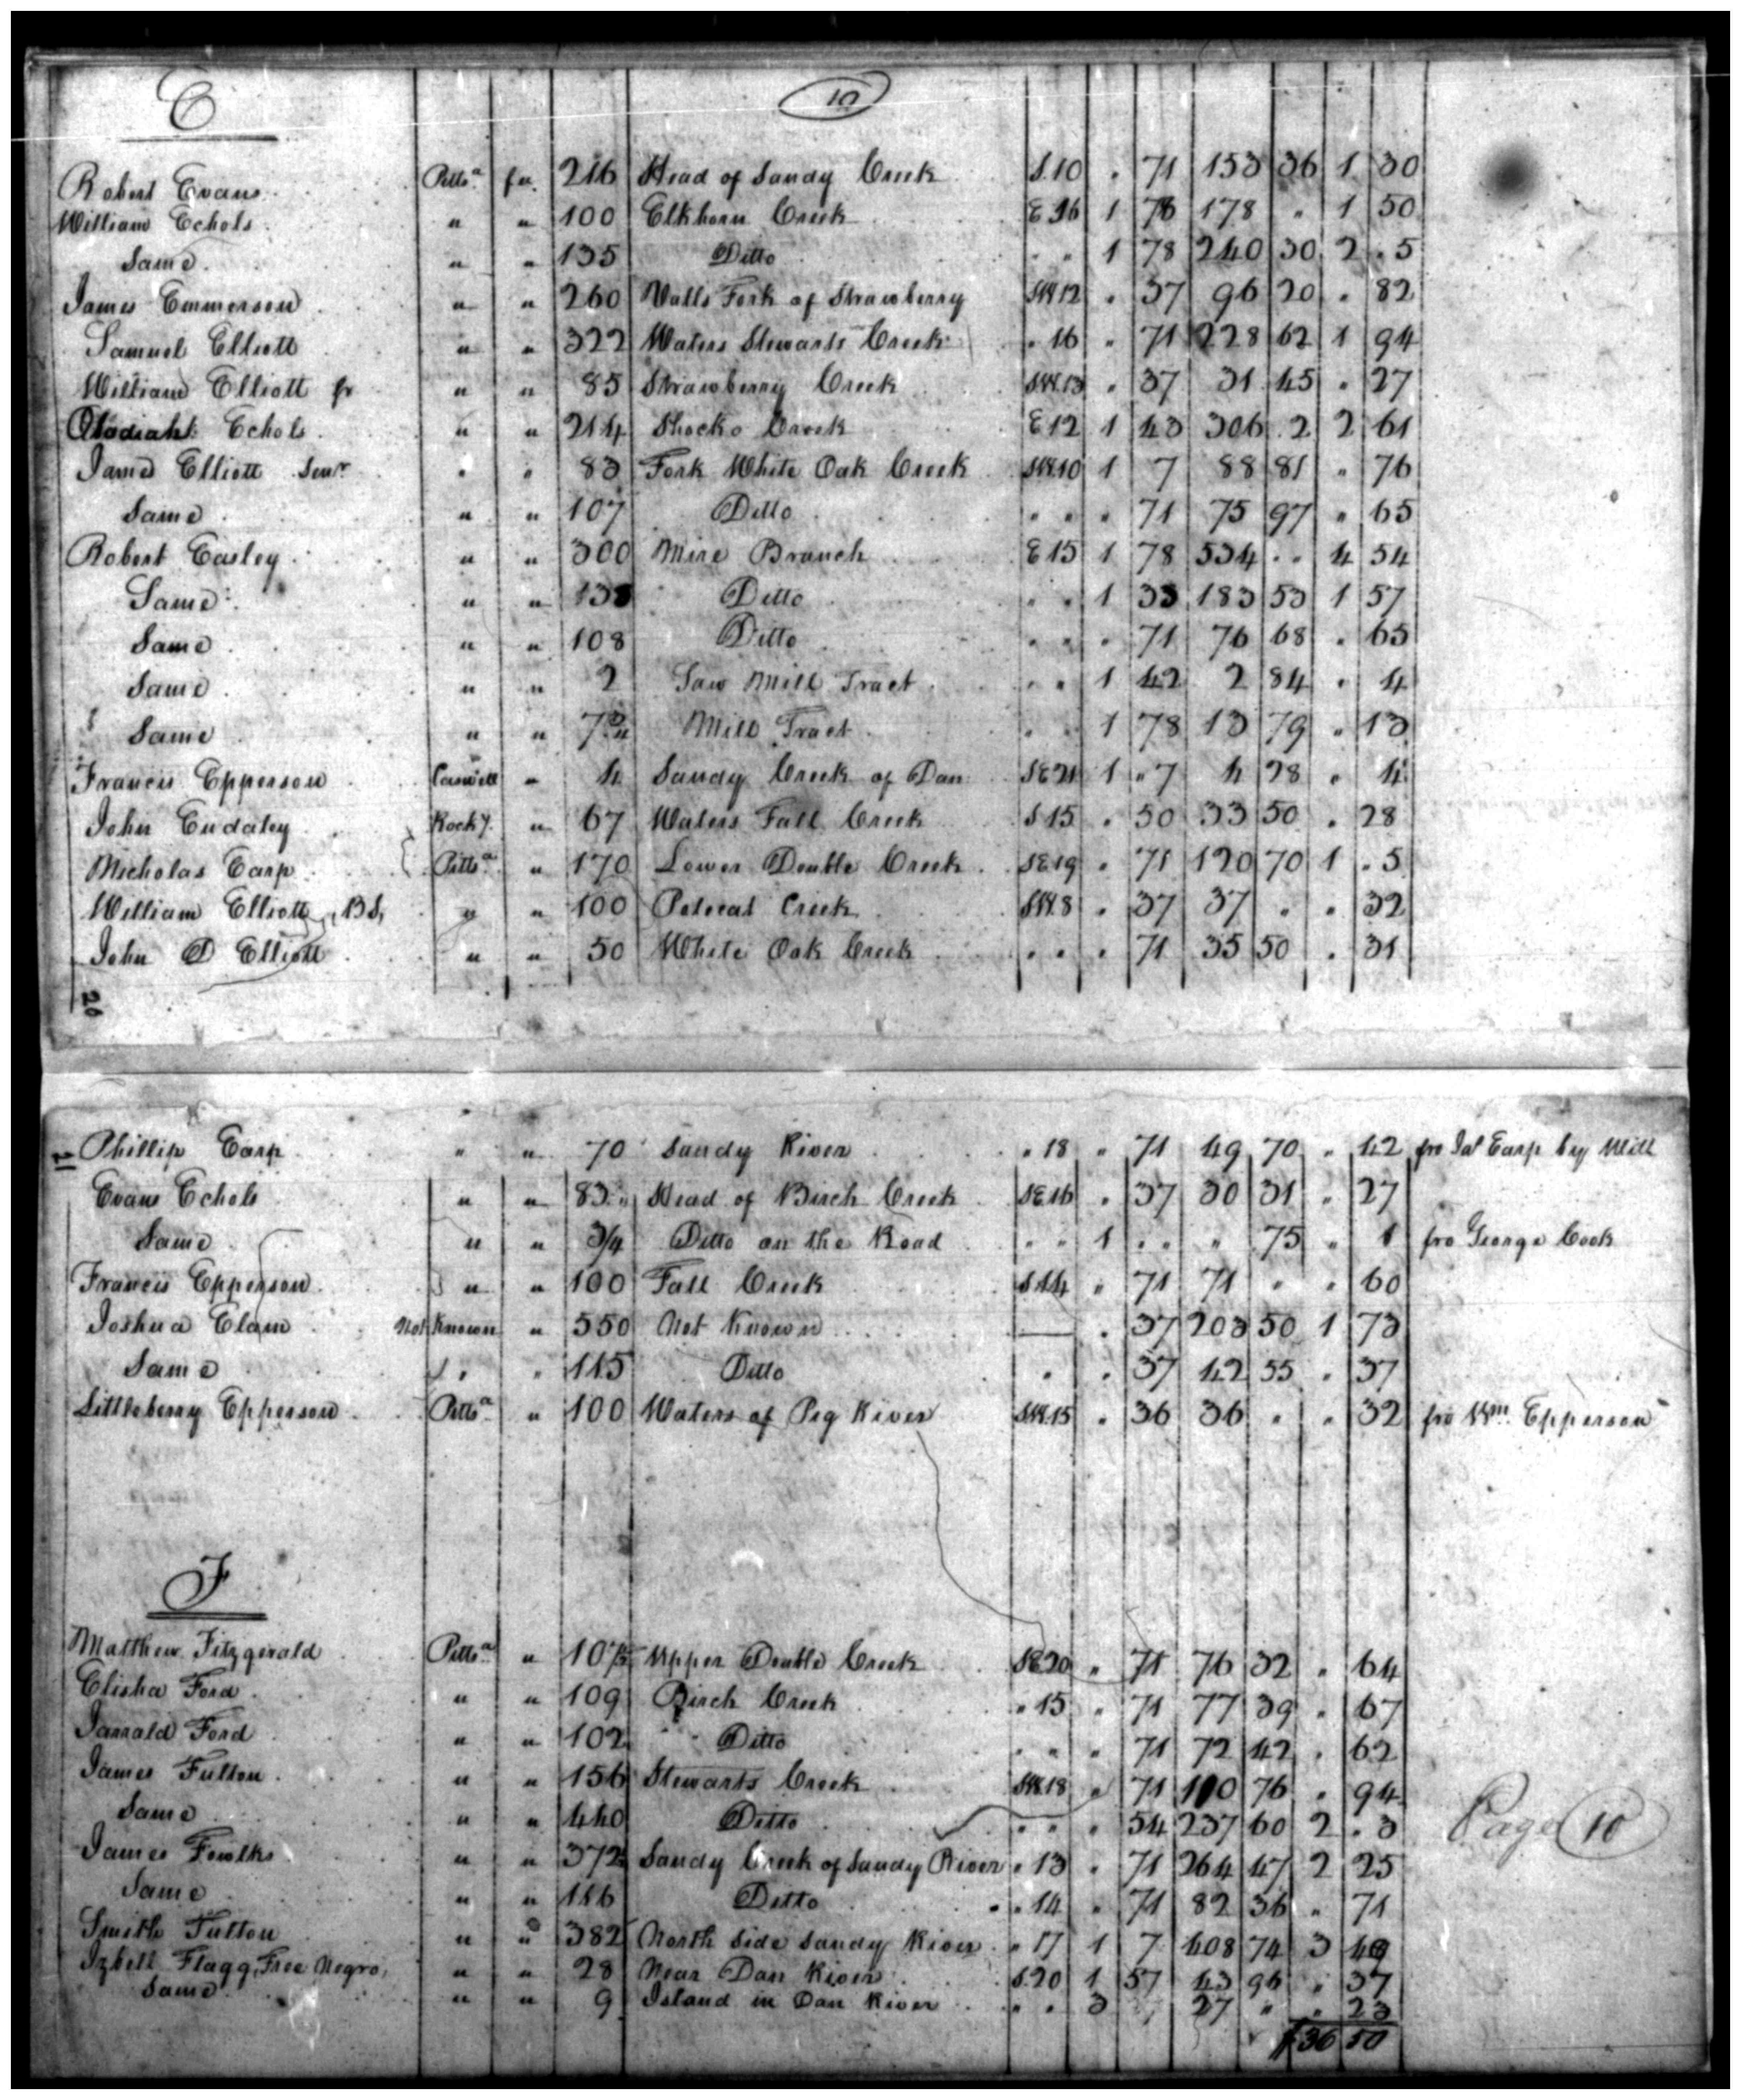 E
10
Robert Evans Pitts.a fee. 216 Head of Sandy Creek S.10 " 71 153 36 1 30
William Echols " " 100 Elkhorn Creek E 16 1 78 178 " 1 50
Same " " 135 Ditto " " 1 78 240 30 2 " 5
James Emmerson " " 260 Walls Fork of Strawberry SW.12 " 37 96 20 " 82
Samuel Elliott " " 322 Waters Stewarts Creek " 16 " 71 228 62 1 94
William Elliott jr " " 85 Strawberry Creek SW.13 " 37 31 45 " 27
Obadiah Echols " " 214 Shocko Creek E 12 1 43 306 2 2 61
James Elliott Senr. " " 83 Fork White Oak Creek SW.10 1 7 88 81 " 76
Same " " 107 Ditto " " " 71 75 97 " 65
Robert Easley " " 300 Mire Branch E 15 1 78 534 " " 4 54
Same " " 138 Ditto " " 1 33 183 53 1 57
Same " " 108 Ditto " " " 71 76 68 " 65
Same " " 2 Saw Mill Tract " " 1 42 2 84 " 4
Same " " 7 3/4 Mill Tract " " 1 78 13 79 " 13
Francis Epperson Caswell " 4 Sandy Creek of Dan SE 21 1 " 7 4 28 " 4
John Eudaley Rocky. " 67 Waters Fall Creek S 15 " 50 33 50 " 28
Nicholas Earp Pitts.a " 170 Lower Double Creek SE 19 " 71 120 70 1 " 5
William Elliott, BS, " " 100 Polecat Creek SW.8 " 37 37 " " 32
John D Elliott " " 50 White Oak Creek " " " 71 35 50 " 31
20
21
Phillip Earp " " 70 Sandy River " 18 " 71 49 70 " 42 fro Jas Earp by Will
Evans Echols " " 83 Head of Birch Creek SE 16 " 37 30 31 " 27
Same " " 3/4 Ditto on the Road " " 1 " " " 75 " 1 fro George Cook
Francis Epperson " " 100 Fall Creek S.14 " 71 71 " " 60
Joshua Elam Not Known " 550 Not Known — " 37 203 50 1 73
Same " " 115 Ditto " " 37 42 55 " 37
Littleberry Epperson Pitts.a " 100 Waters of Pig River SW.15 " 36 36 " " 32 fro Wm. Epperson
F
Matthew Fitzgerald Pitts.a " 107½ Upper Double Creek SE 20 " 71 76 32 " 64
Elisha Ford " " 109 Birch Creek " 15 " 71 77 39 " 67
Jarrald Ford " " 102 Ditto " " " 71 72 42 " 62
James Fulton " " 156 Stewarts Creek SW.18 " 71 110 76 " 94
Same " " 440 Ditto " " " 54 237 60 2 " 3
James Fowlks " " 372 Sandy Creek of Sandy River " 13 " 71 264 47 2 25
Page 10
Same " " 116 Ditto " 14 " 71 82 36 " 71
Smith Fulton " " 382 North Side Sandy River " 17 1 7 408 74 3 49
Izbell Flagg, Free Negro, " " 28 Near Dan River S.20 1 57 43 96 " 37
Same " " 9 Island in Dan River " " 3 " 27 " " 23
$36 50